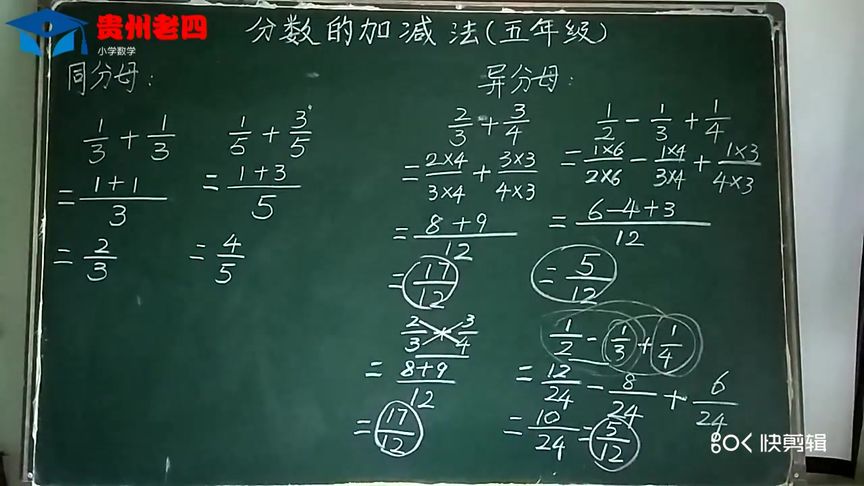 贵州老四
小学数学
分数的加减法(五年级)
同分母:
1/3 + 1/3
= (1+1)/3
= 2/3
1/5 + 3/5
= (1+3)/5
= 4/5
异分母:
2/3 + 3/4
= (2×4)/(3×4) + (3×3)/(4×3)
= (8+9)/12
= 17/12
2/3 + 3/4
= (8+9)/12
= 17/12
1/2 - 1/3 + 1/4
= (1×6)/(2×6) - (1×4)/(3×4) + (1×3)/(4×3)
= (6-4+3)/12
= 5/12
1/2 - 1/3 + 1/4
= 12/24 - 8/24 + 6/24
= 10/24 = 5/12
快剪辑